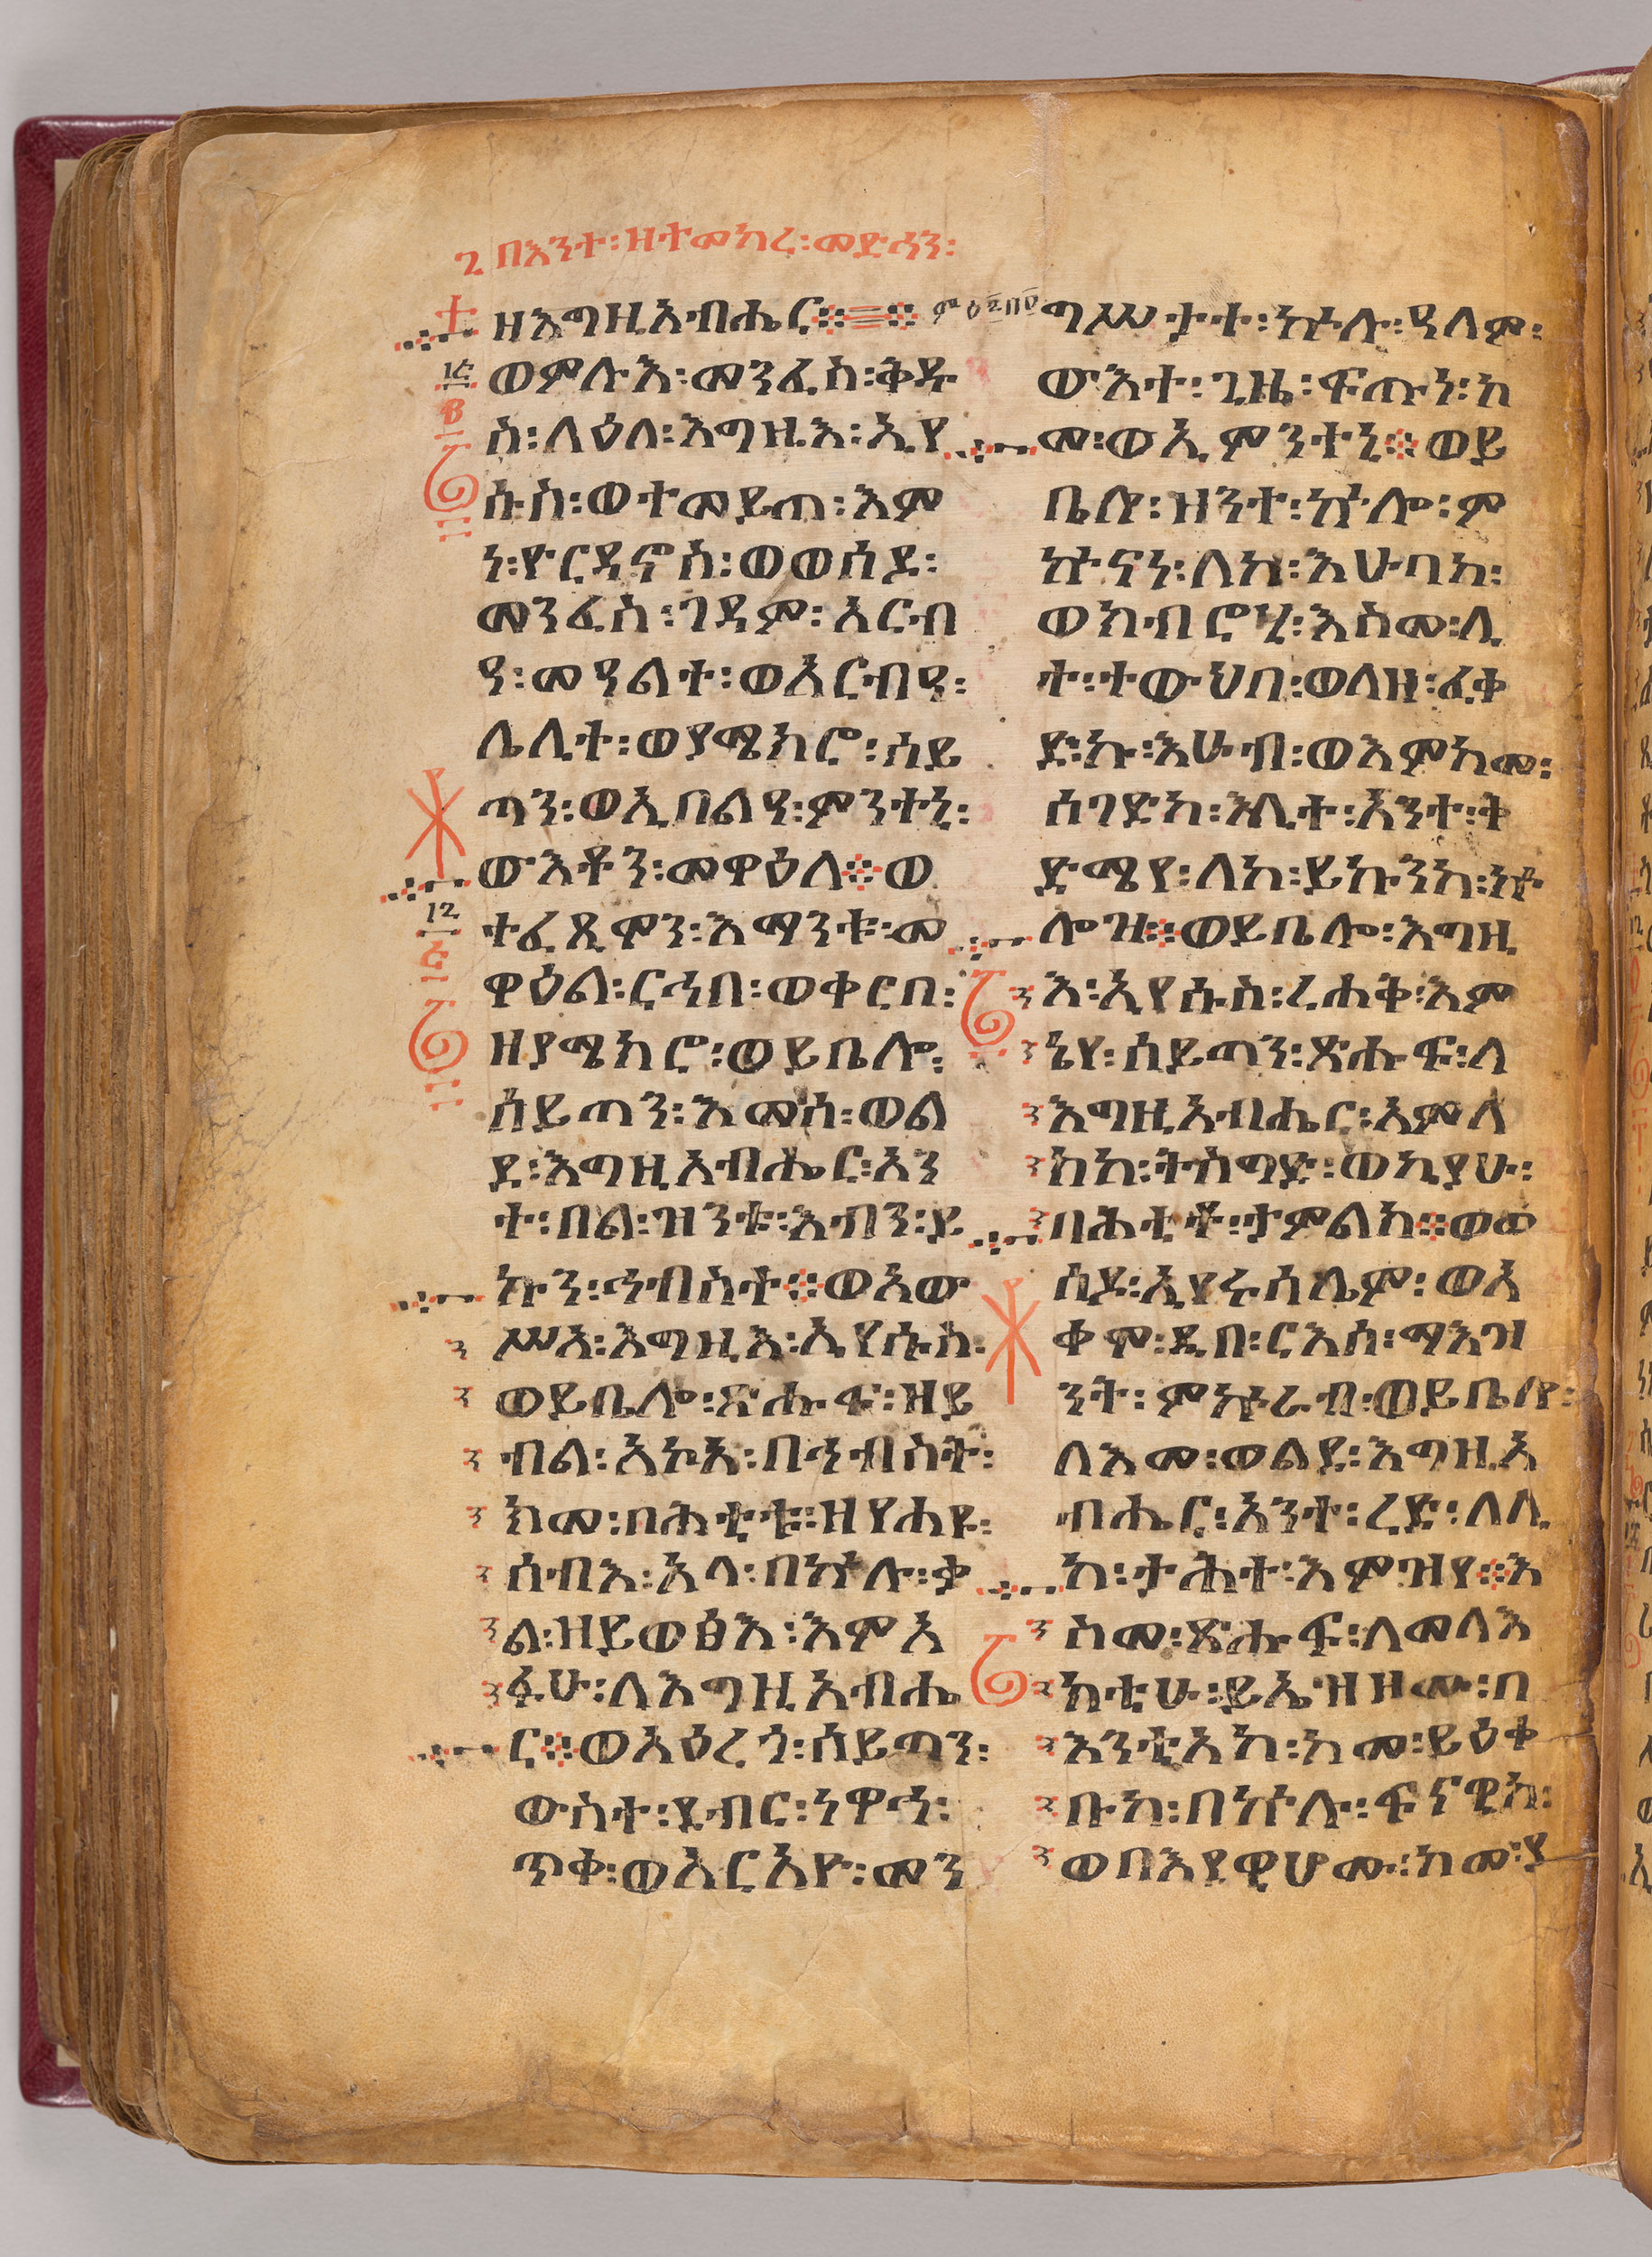 በእንተ፡ዘተመከረ፡መድኅን፡
ዘእግዚአብሔር፨
ወምሉእ፡መንፈስ፡ቅዱ
ስ፡ላዕለ፡እግዚእ፡ኢየ
ሱስ፡ወተመይጠ፡እም
ነ፡ዮርዳኖስ፡ወወሰዶ፡
መንፈስ፡ገዳም፡አርብ
ዓ፡መዓልተ፡ወአርብዓ፡
ሌሊተ፡ወያሜክሮ፡ሰይ
ጣን፡ወኢበልዓ፡ምንተኒ፡
ውእቶን፡መዋዕለ፨ወ
ተፈጺሞን፡እማንቱ፡መ
ዋዕል፡ርኅበ፡ወቀርበ፡
ዘያሜክሮ፡ወይቤሎ፡
ሰይጣን፡እመሰ፡ወል
ደ፡እግዚአብሔር፡አን
ተ፡በል፡ዝንቱ፡እብን፡ይ
ኩን፡ኅብስተ፨ወአው
ሥአ፡እግዚእ፡ኢየሱስ፡
ወይቤሎ፡ጽሑፍ፡ዘይ
ብል፡አኮአ፡በኅብስት፡
ክመ፡በሕቲቱ፡ዘየሐዩ፡
ሰብእ፡አላ፡በኵሉ፡ቃ
ል፡ዘይወፅእ፡እምአ
ፉሁ፡ለእግዚአብሔ
ር፨ወአዕረጎ፡ሰይጣን፡
ውስተ፡ደብር፡ነዋኅ፡
ጥቀ፡ወአርአዮ፡መን
ግሥታተ፡ኵሉ፡ዓለም፡
ውእተ፡ጊዜ፡ፍጡነ፡ከ
መ፡ወኢምንተኒ፨ወይ
ቤሎ፡ዘንተ፡ኵሎ፡ም
ኵናነ፡ለከ፡እሁባከ፡
ወክብሮሂ፡እስመ፡ሊ
ተ፡ተውህበ፡ወለዘ፡ፈቀ
ድኩ፡እሁብ፡ወእምከመ፡
ሰገድከ፡ሊተ፡አንተ፡ቅ
ድሜየ፡ለከ፡ይኩንከ፡ኵ
ሎዝ፨ወይቤሎ፡እግዚ
እ፡ኢየሱስ፡ረሐቅ፡እም
ኔየ፡ሰይጣን፡ጽሑፍ፡ለ
እግዚአብሔር፡አምላ
ክከ፡ትስግድ፡ወኪያሁ፡
በሕቲቶ፡ታምልክ፨ወወ
ሰዶ፡ኢየሩሳሌም፡ወአ
ቀሞ፡ዲበ፡ርእሰ፡ማእዝ
ንት፡ምኵራብ፡ወይቤሎ፡
ለእመ፡ወልደ፡እግዚአ
ብሔር፡አንተ፡ረድ፡ለሊ
ከ፡ታሕተ፡እምዝየ፨እ
ስመ፡ጽሑፍ፡ለመላእ
ክቲሁ፡ይኤዝዞሙ፡በ
እንቲአከ፡ከመ፡ይዕቀ
ቡከ፡በኵሉ፡ፍናዊከ፡
ወበእደዊሆሙ፡ከመ፡ያ